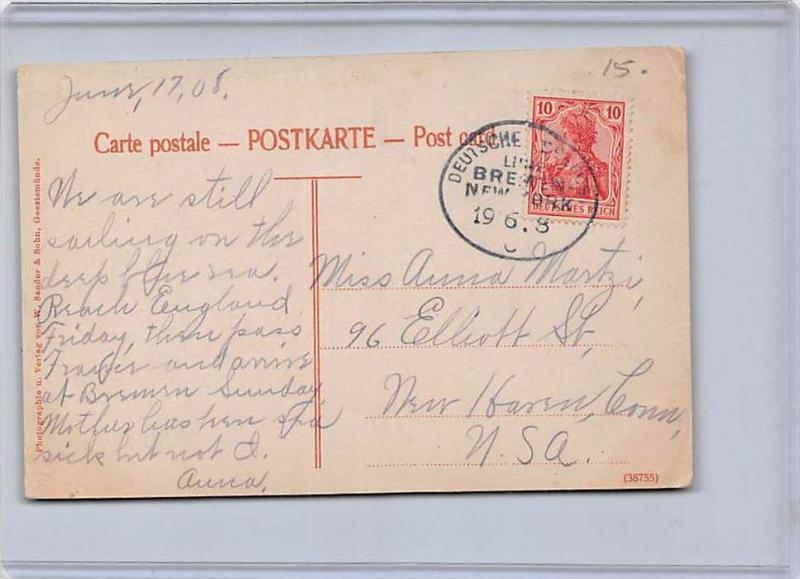 June, 17, 08.
15.
Carte postale — POSTKARTE — Post card
10 10
DEUTSCHES REICH
DEUTSCHE
BREMEN
NEW YORK
19 6. 8
c
We are still
sailing on the
deep blue sea.
Reach England
Friday, then pass
France and arrive
at Bremen Sunday.
Mother has been
sick but not I.
Anna.
Miss Anna Martzi,
96 Elliott St,
New Haven, Conn,
U.S.A.
Photographie u. Verlag von W. Sander & Sohn, Geestemünde.
(38755)